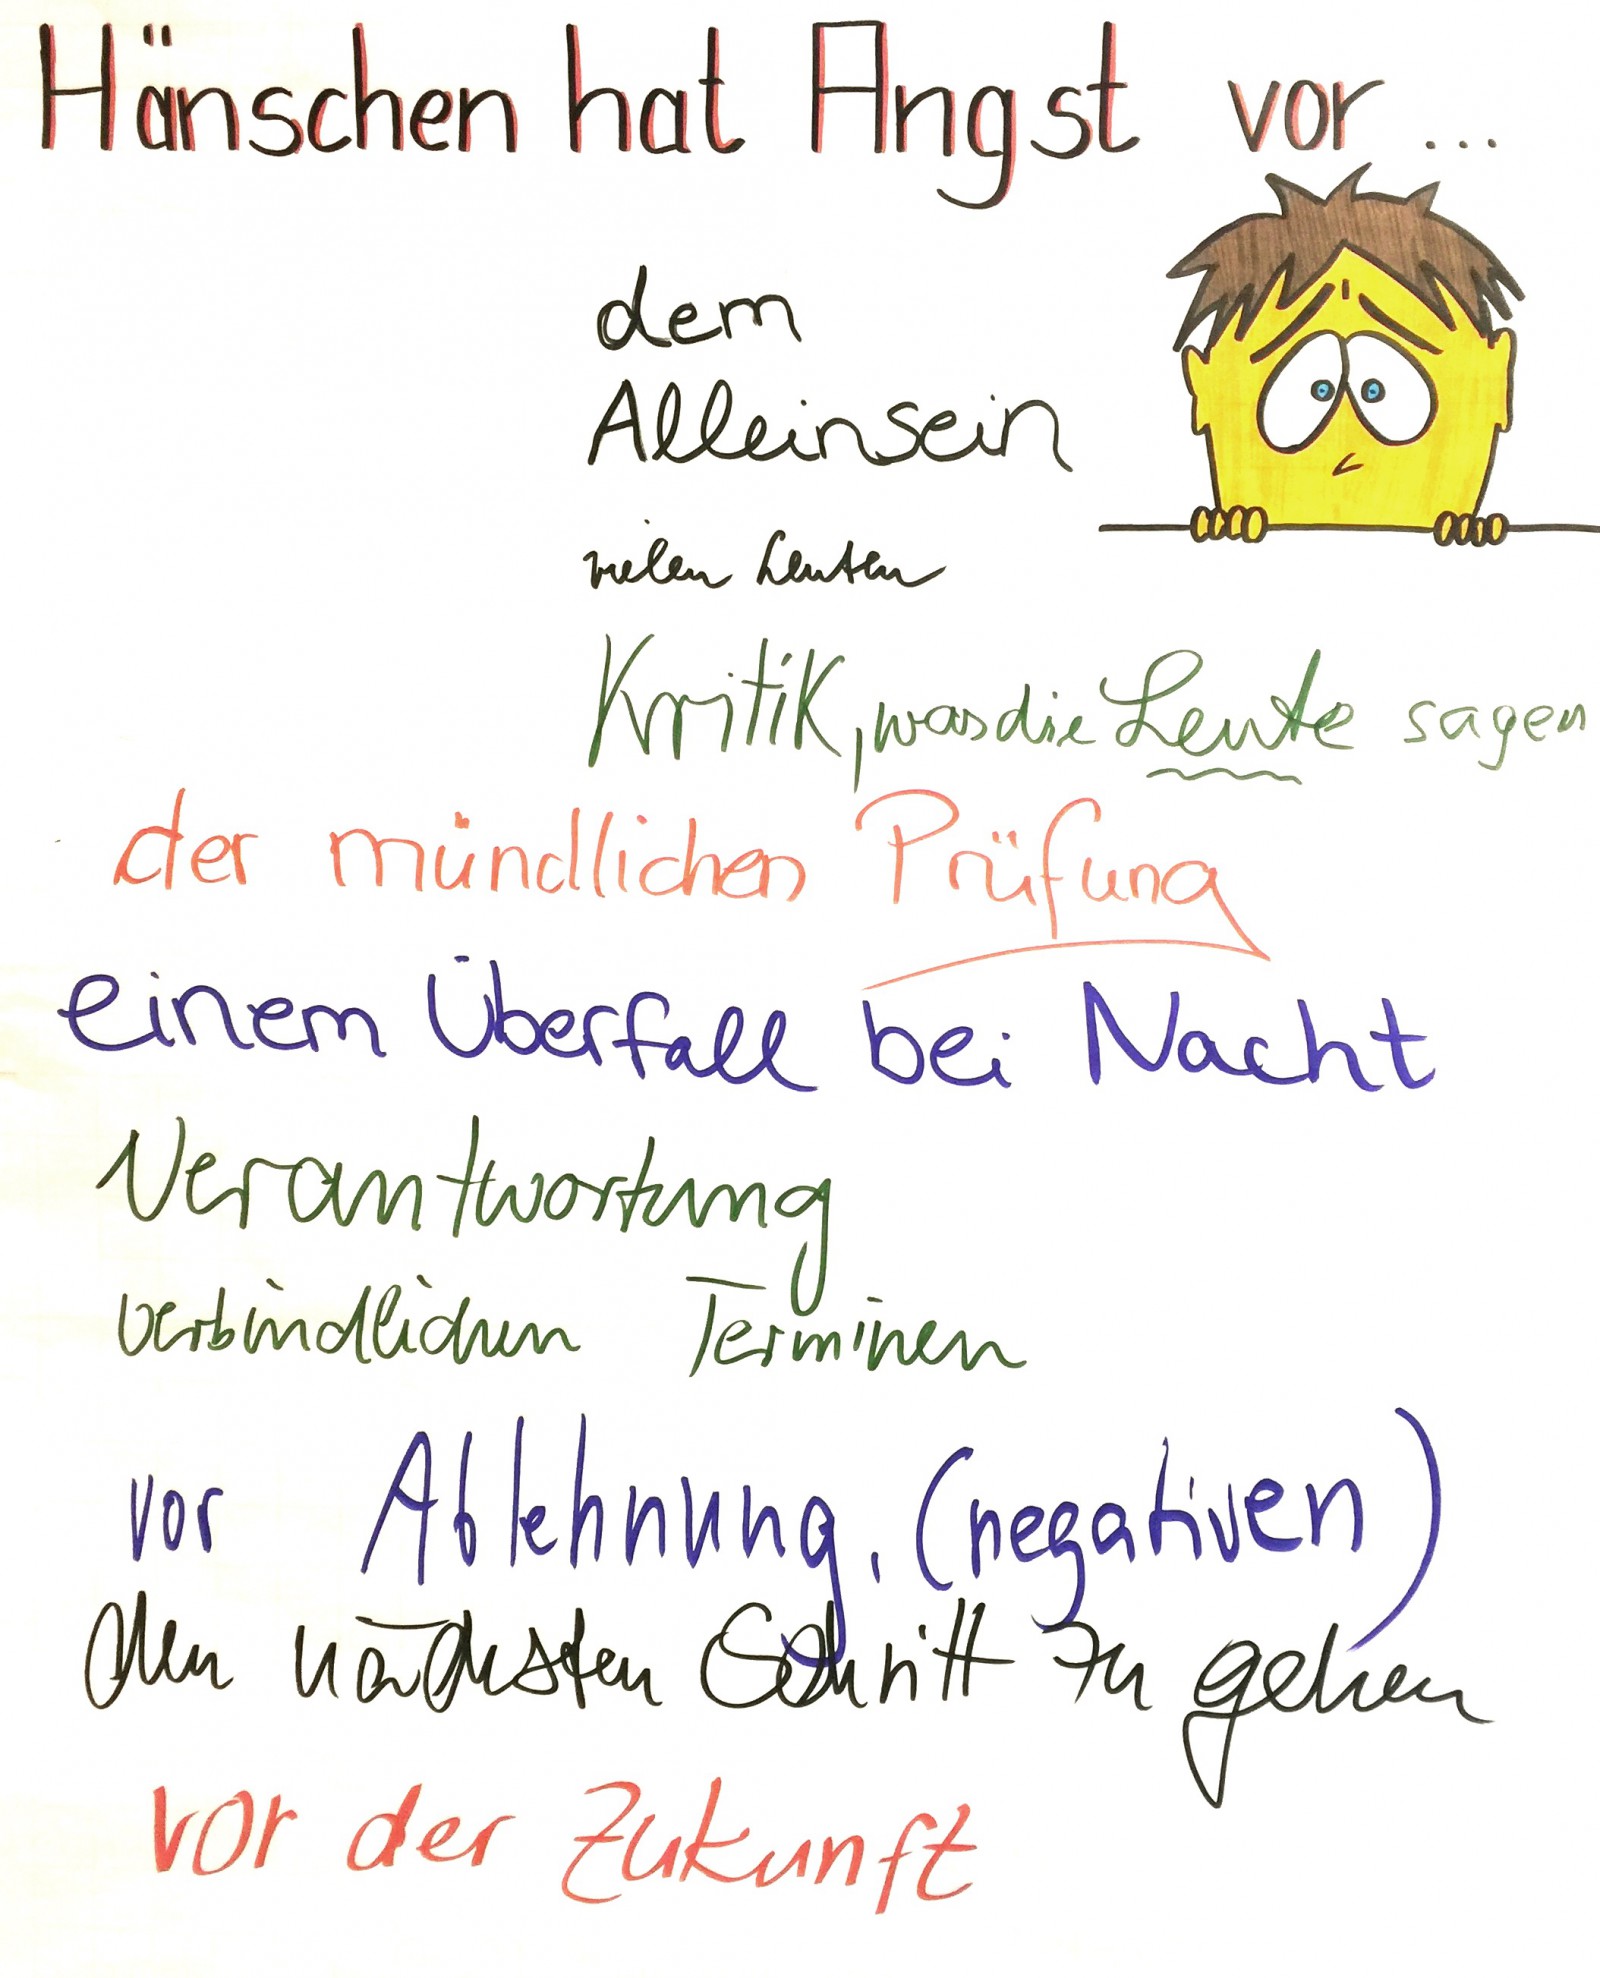 Hänschen hat Angst vor ...
dem
Alleinsein
vielen Leuten
Kritik, was die Leute sagen
der mündlichen Prüfung
einem Überfall bei Nacht
Verantwortung
verbindlichen Terminen
vor Ablehnung, (negativen)
den nächsten Schritt zu gehen
vor der Zukunft